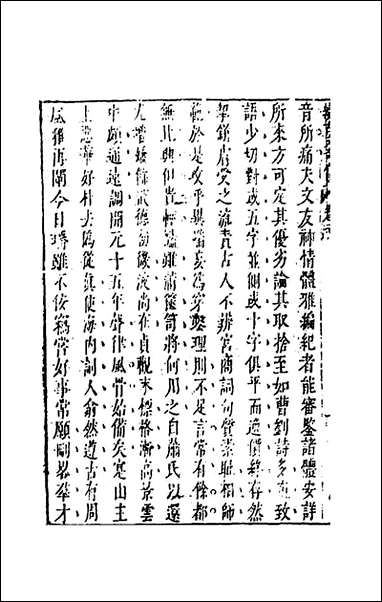 音所痛夫文友神情體雅編紀者能審鑒諸體安詳
所來方可定其優劣論其取捨至如曹劉詩多直致
語少切對或五字並側或十字俱平而逸價終存然
挈缾膚受之流責古人不辨宮商詞句質素恥相師
範於是攻乎異端妄爲穿鑿理則不足言常有餘都
無比興但貴輕艷雖滿篋笥將何用之自蕭氏以還
尤增矯飾武德初微波尚在貞觀末標格漸高景雲
中頗通遠調開元十五年聲律風骨始備矣寔由主
上惡華好朴去僞從眞使海內詞人翕然遵古有周
風復再闡今日璠雖不佞竊嘗好事常願刪畧羣才